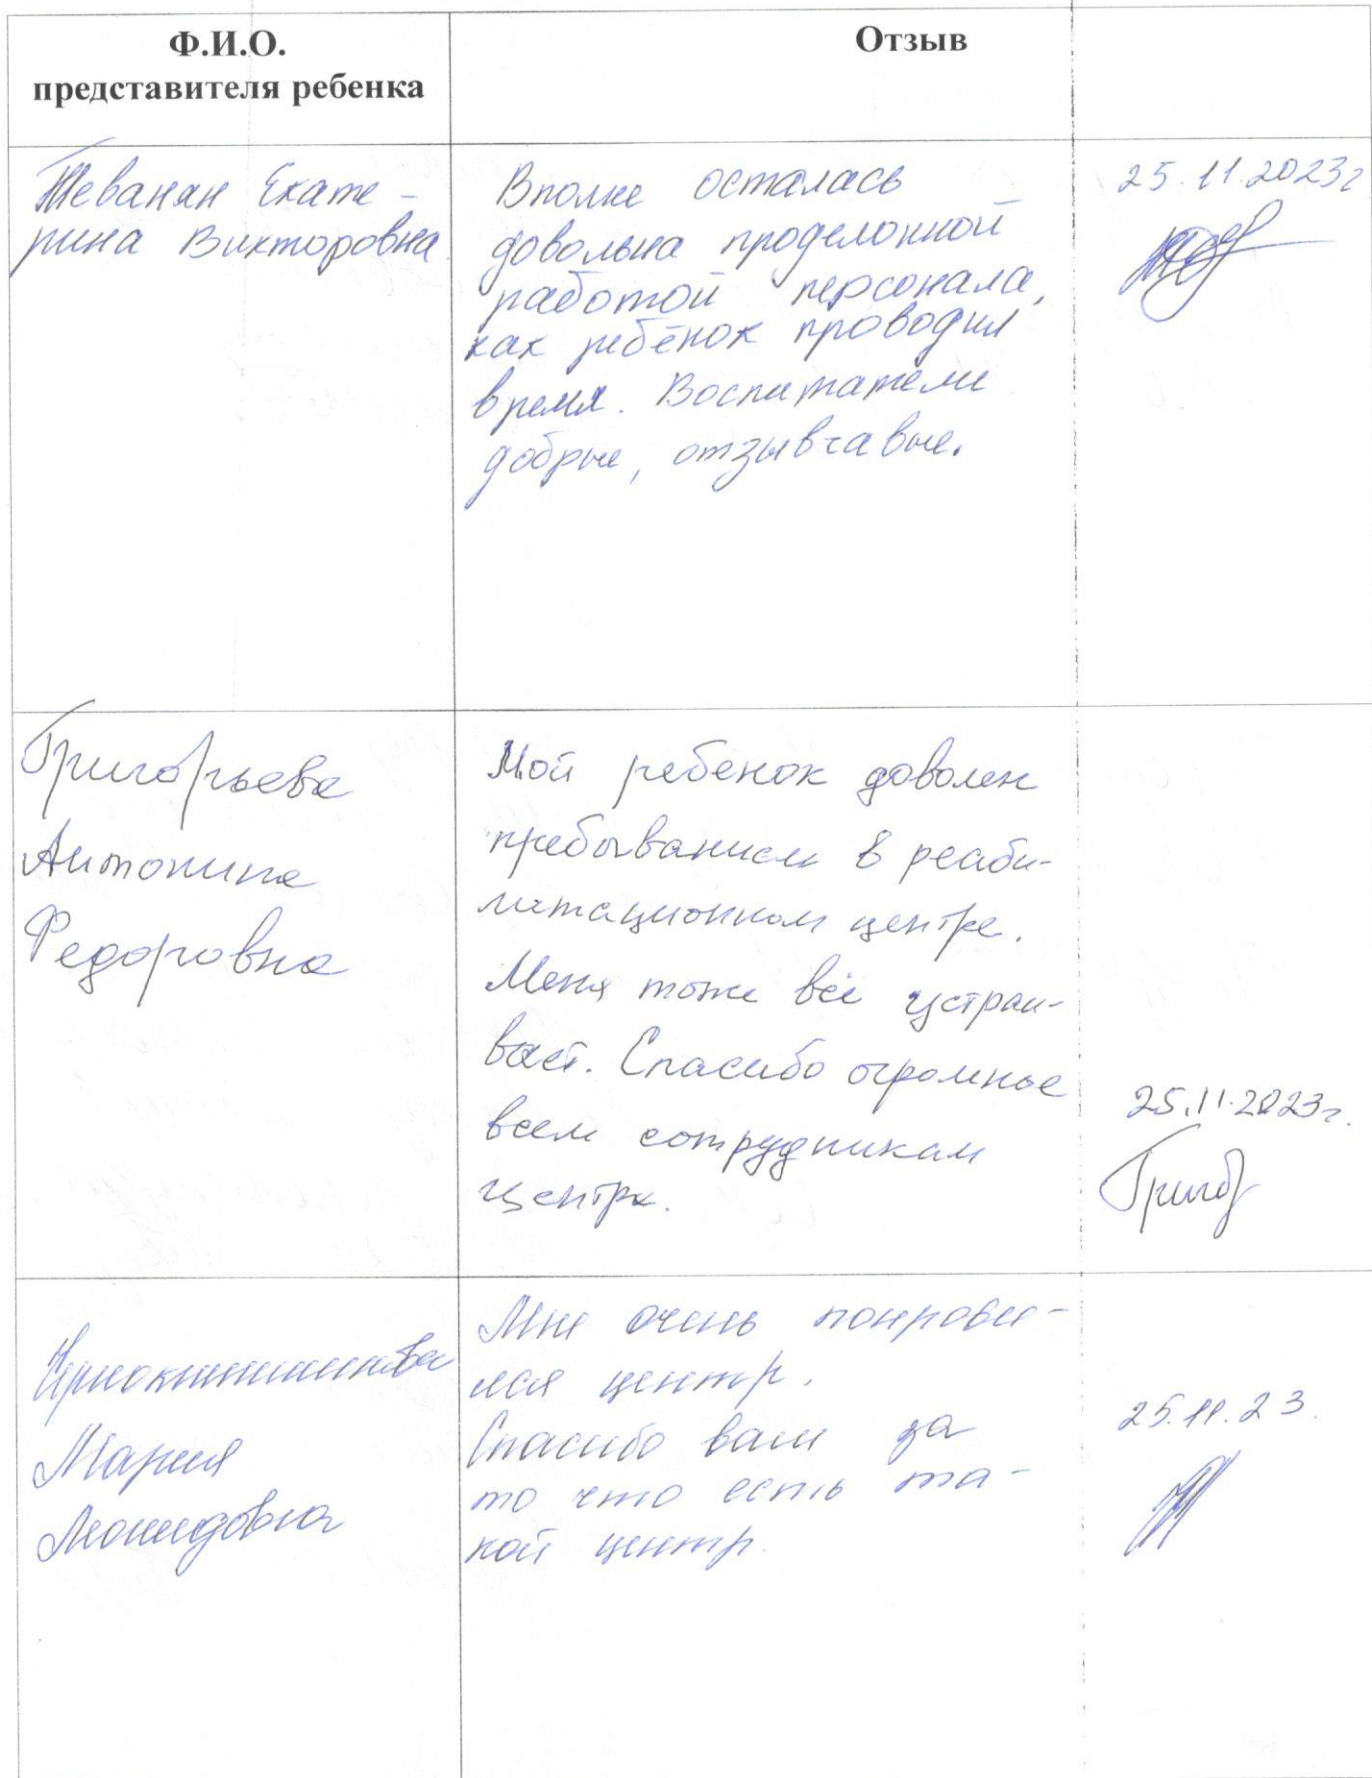 Ф.И.О.
представителя ребенка
Отзыв
Теванян Екате-
рина Викторовна
Вполне осталась
довольна проделонной
работой персонала,
как ребёнок проводил
время. Воспитатели
добрые, отзывчавые.
25.11.2023г
Григорьева
Антонина
Федоровна
Мой ребенок доволен
пребыванием в реаби-
литационном центре.
Меня тоже всё устраи-
вает. Спасибо огромное
всем сотрудникам
центра.
25.11.2023г.
Григ
Мария
Леонидовна
Мне очень понрави-
лся центр.
Спасибо вам за
то что есть та-
кой центр.
25.11.23.